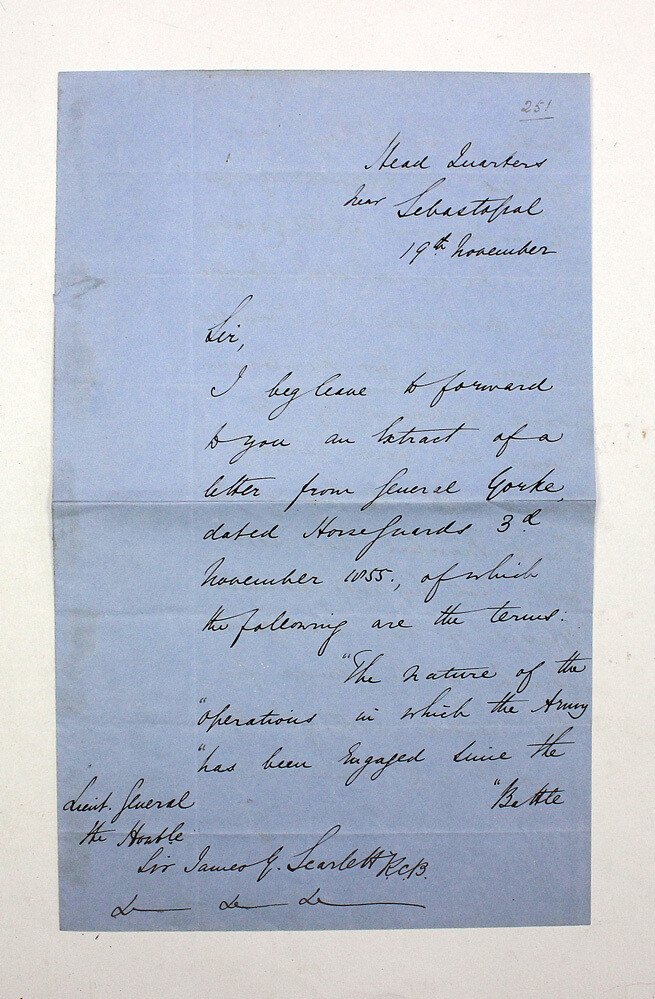 251
Head Quarters
near Sebastopol
19th November
Sir,
I beg leave to forward
to you an Extract of a
letter from General Yorke,
dated Horse Guards 3d
November 1855., of which
the following are the terms:
"The nature of the
"operations in which the Army
"has been Engaged since the
"Battle
Lieut. General
the Honble
Sir James Y. Scarlett K.C.B.